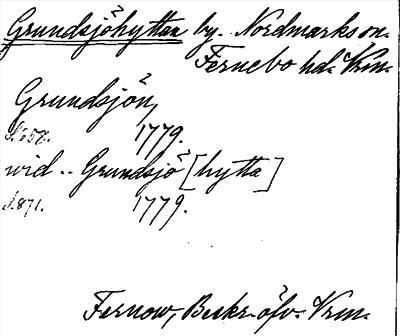 Grundsjöhyttan by. Nordmarks sn.
Fernebo hd. Vrm.
Grundsjön,
S. 658. 1779.
wid .. Grundsjö [hytta]
S. 871. 1779.
Fernow, Beskr. öfv. Vrm.